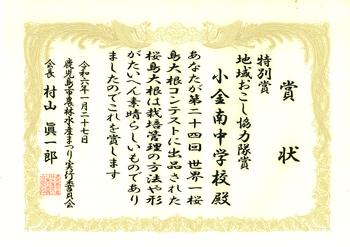 賞状
特別賞
地域おこし協力隊賞
小金南中学校殿
あなたが第二十四回世界一桜
島大根コンテストに出品された
桜島大根は栽培管理の方法や形
がたいへん素晴らしいものであり
ましたのでこれを賞します
令和六年一月二十七日
鹿児島市農林水産まつり実行委員会
会長 村山 眞一郎